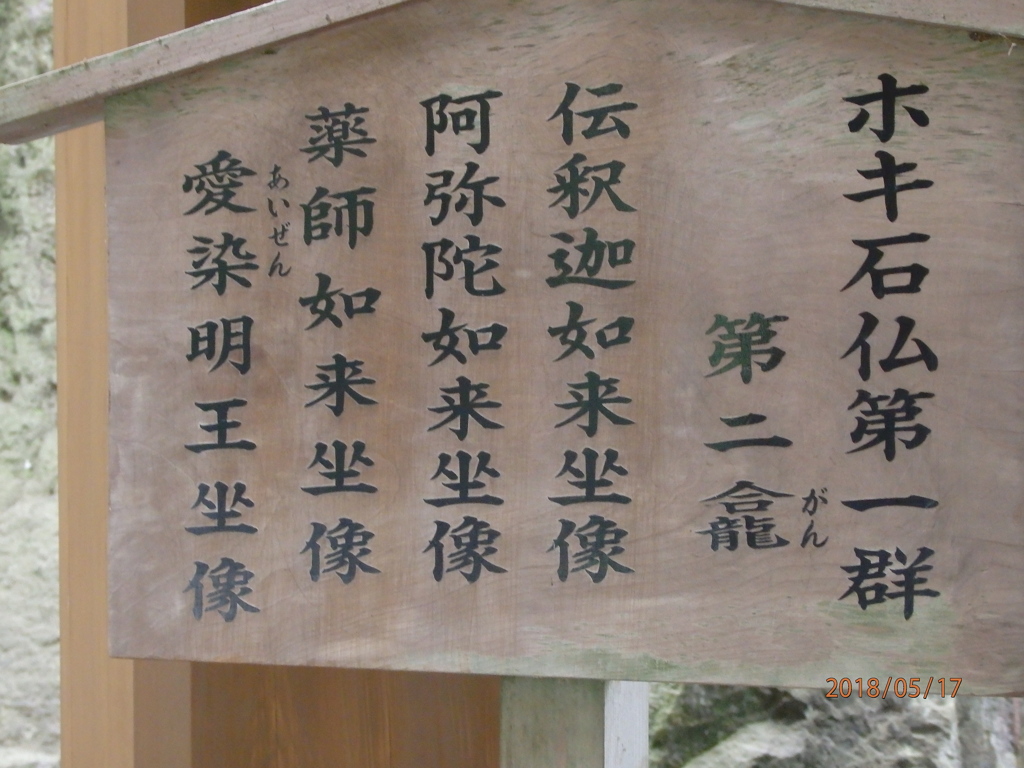 ホキ石仏第一群
第二龕
がん
伝釈迦如来坐像
阿弥陀如来坐像
薬師如来坐像
愛染明王坐像
あいぜん
2018/05/17